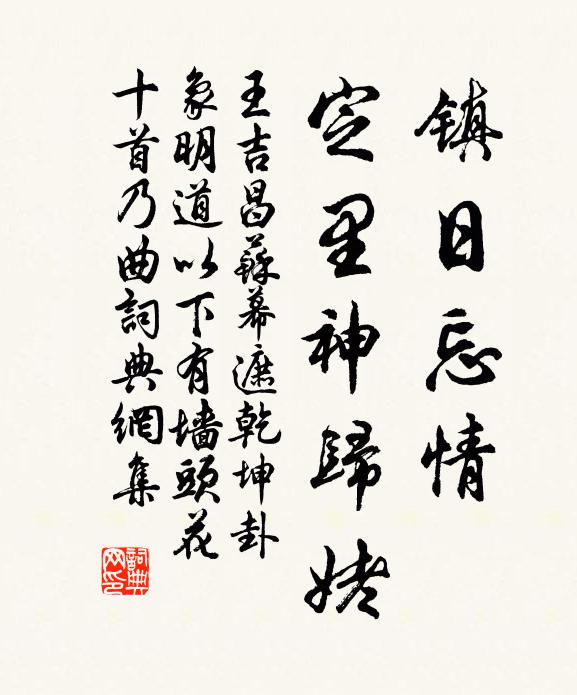 鎮日忘情
定里神歸姥
王吉昌蘇幕遮乾坤卦
象明道以下有墻頭花
十首乃曲詞典網集
詞典
网印